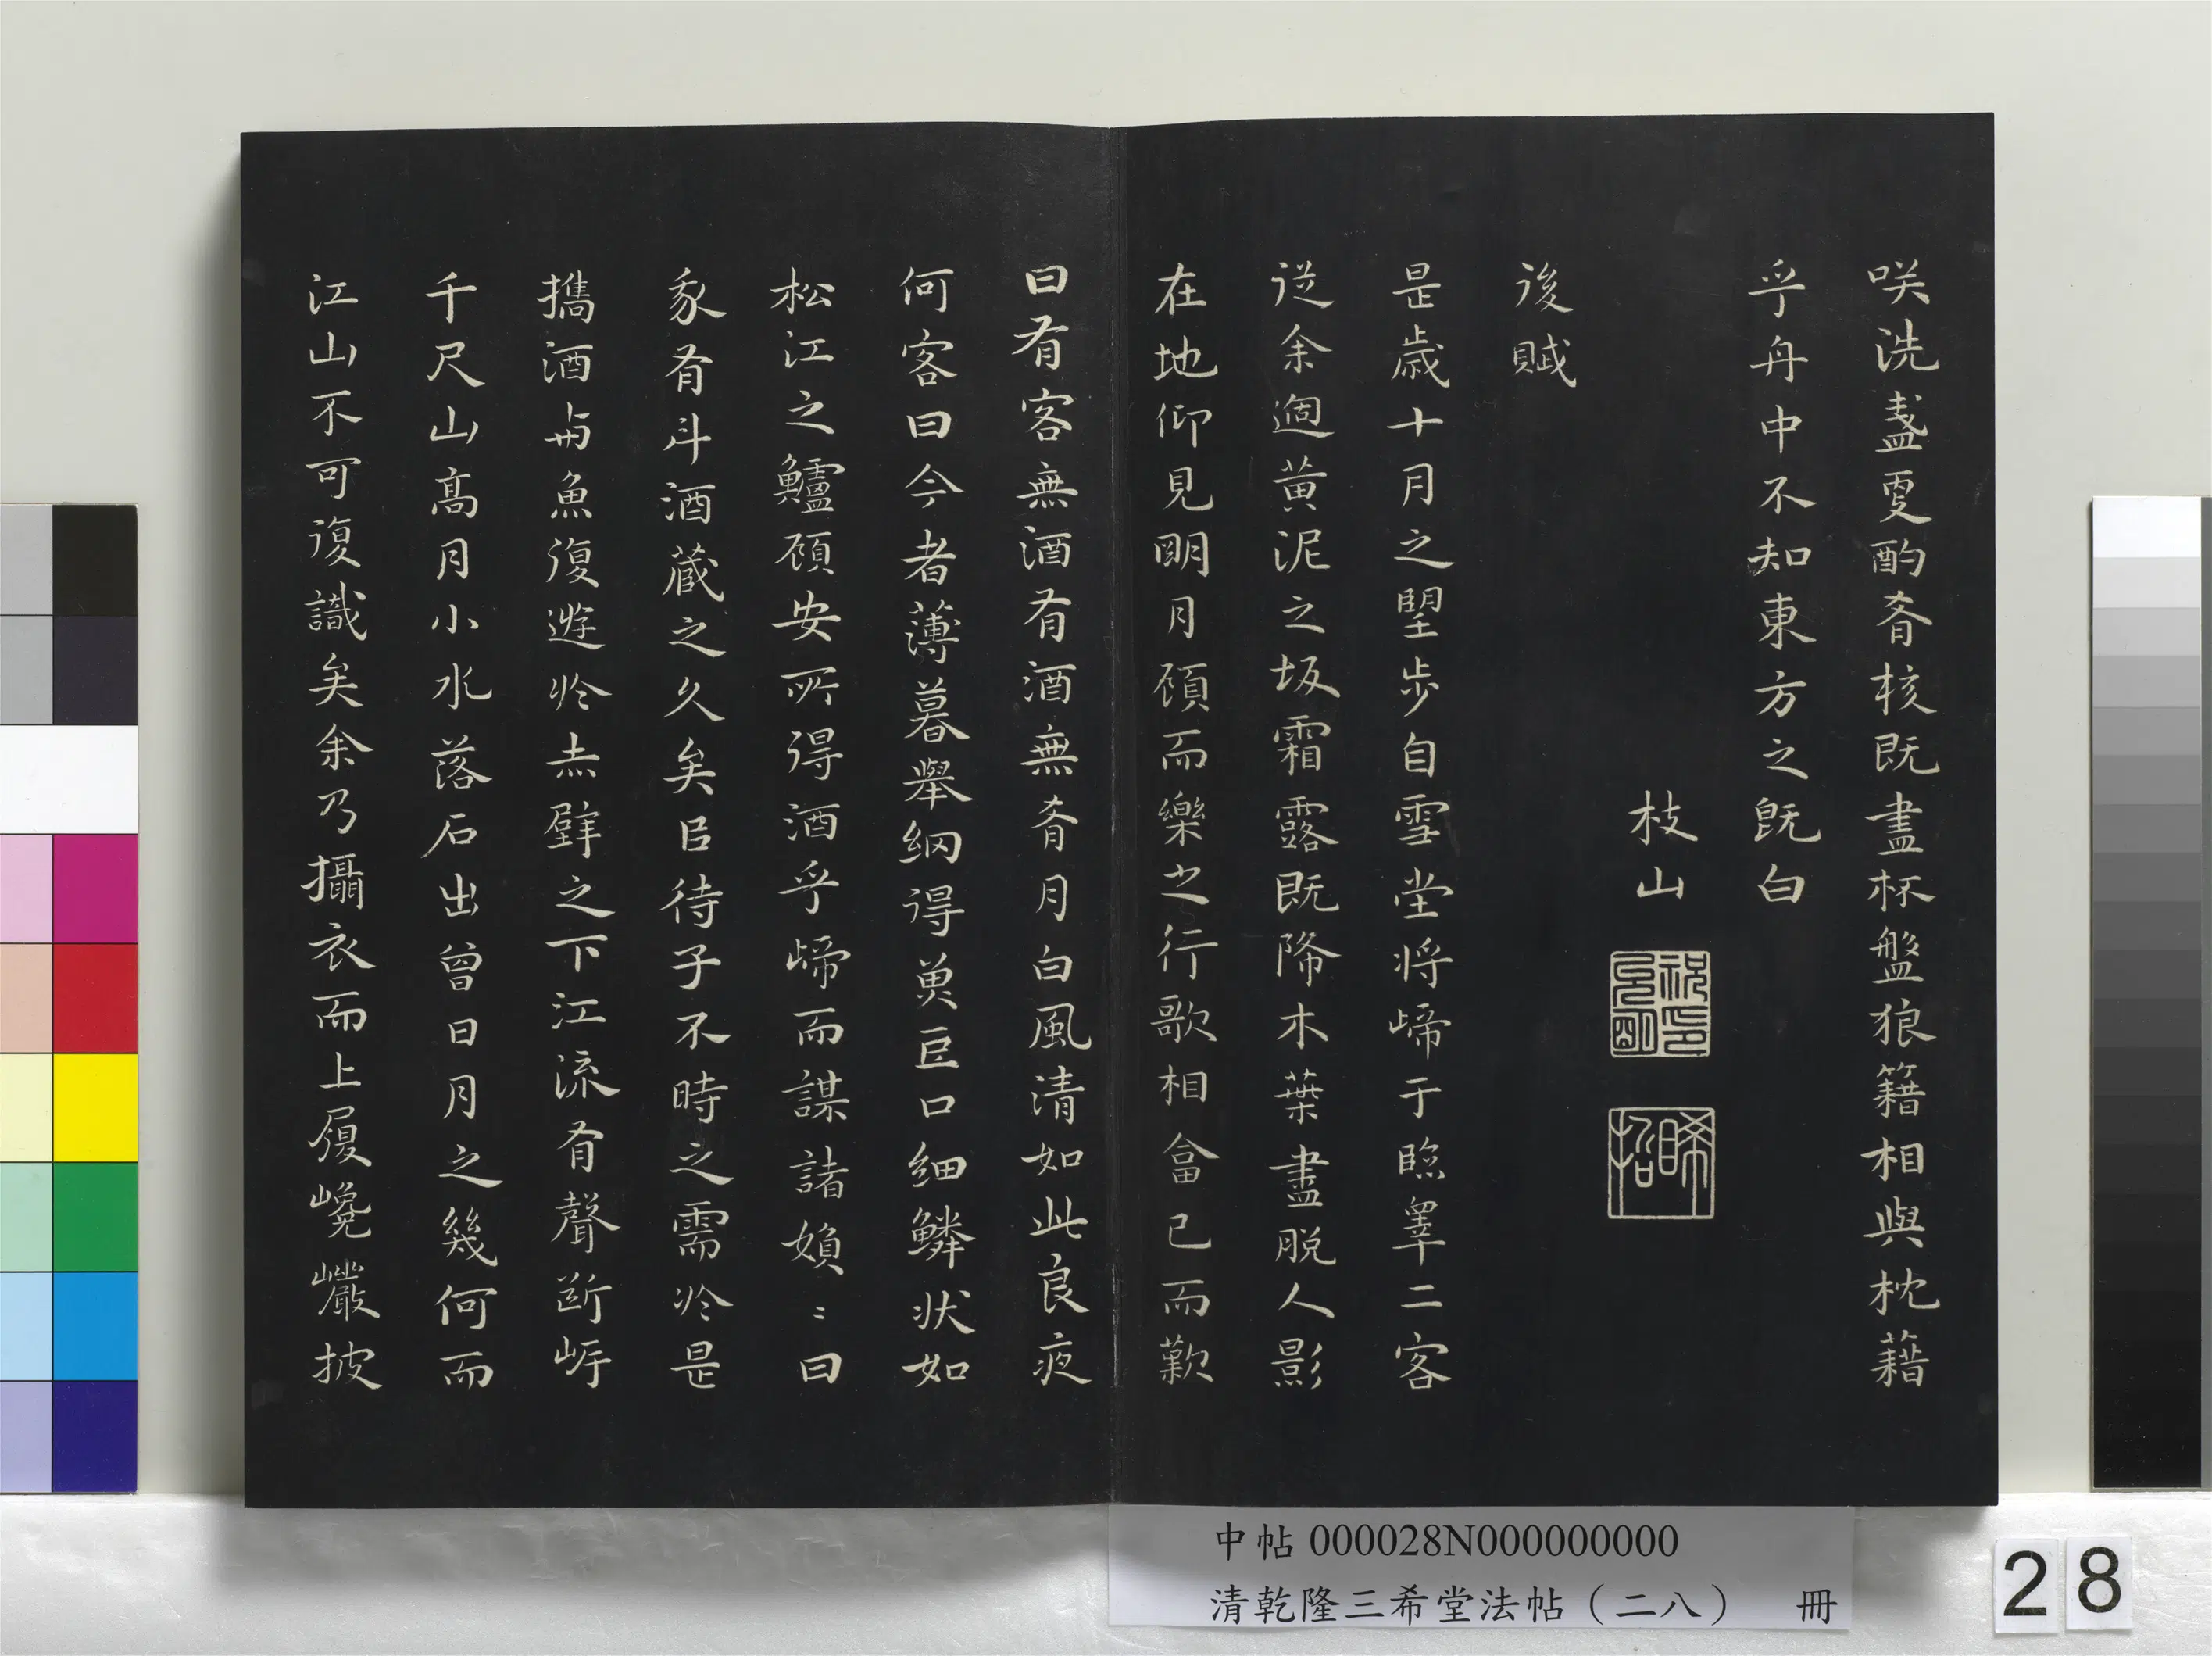 咲洗盞更酌肴核既盡杯盤狼籍相與枕藉
乎舟中不知東方之既白
枝山
祝允明印
晞喆
後賦
是歲十月之朢步自雪堂將歸于臨皋二客
從余過黃泥之坂霜露既降木葉盡脫人影
在地仰見明月顧而樂之行歌相畣已而歎
曰有客無酒有酒無肴月白風清如此良夜
何客曰今者薄暮舉網得魚巨口細鱗狀如
松江之鱸顧安所得酒乎歸而謀諸婦〻曰
我有斗酒藏之久矣以待子不時之需於是
攜酒與魚復遊於赤壁之下江流有聲斷岸
千尺山高月小水落石出曾日月之幾何而
江山不可復識矣余乃攝衣而上履巉巖披
中帖 000028N000000000
清乾隆三希堂法帖（二八） 冊
28